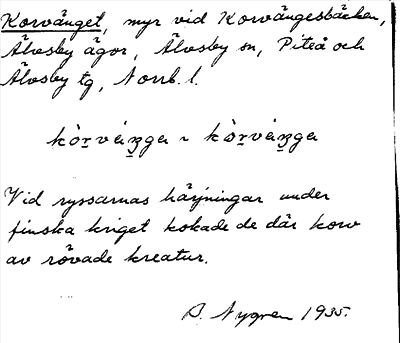 Korvänget, myr vid Korvängesbäcken,
Älvsby ägor, Älvsby sn, Piteå och
Älvsby tg, Norrb. l.
kòrvèŋga ~ kòrvèŋga
Vid ryssarnas härjningar under
finska kriget kokade de där korv
av rövade kreatur.
B. Nygren 1935.